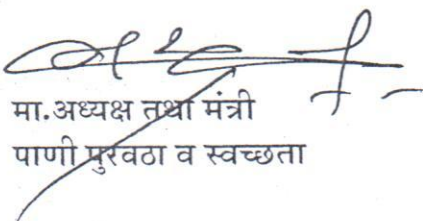 मा.अध्यक्ष तथा मंत्री
पाणी पुरवठा व स्वच्छता